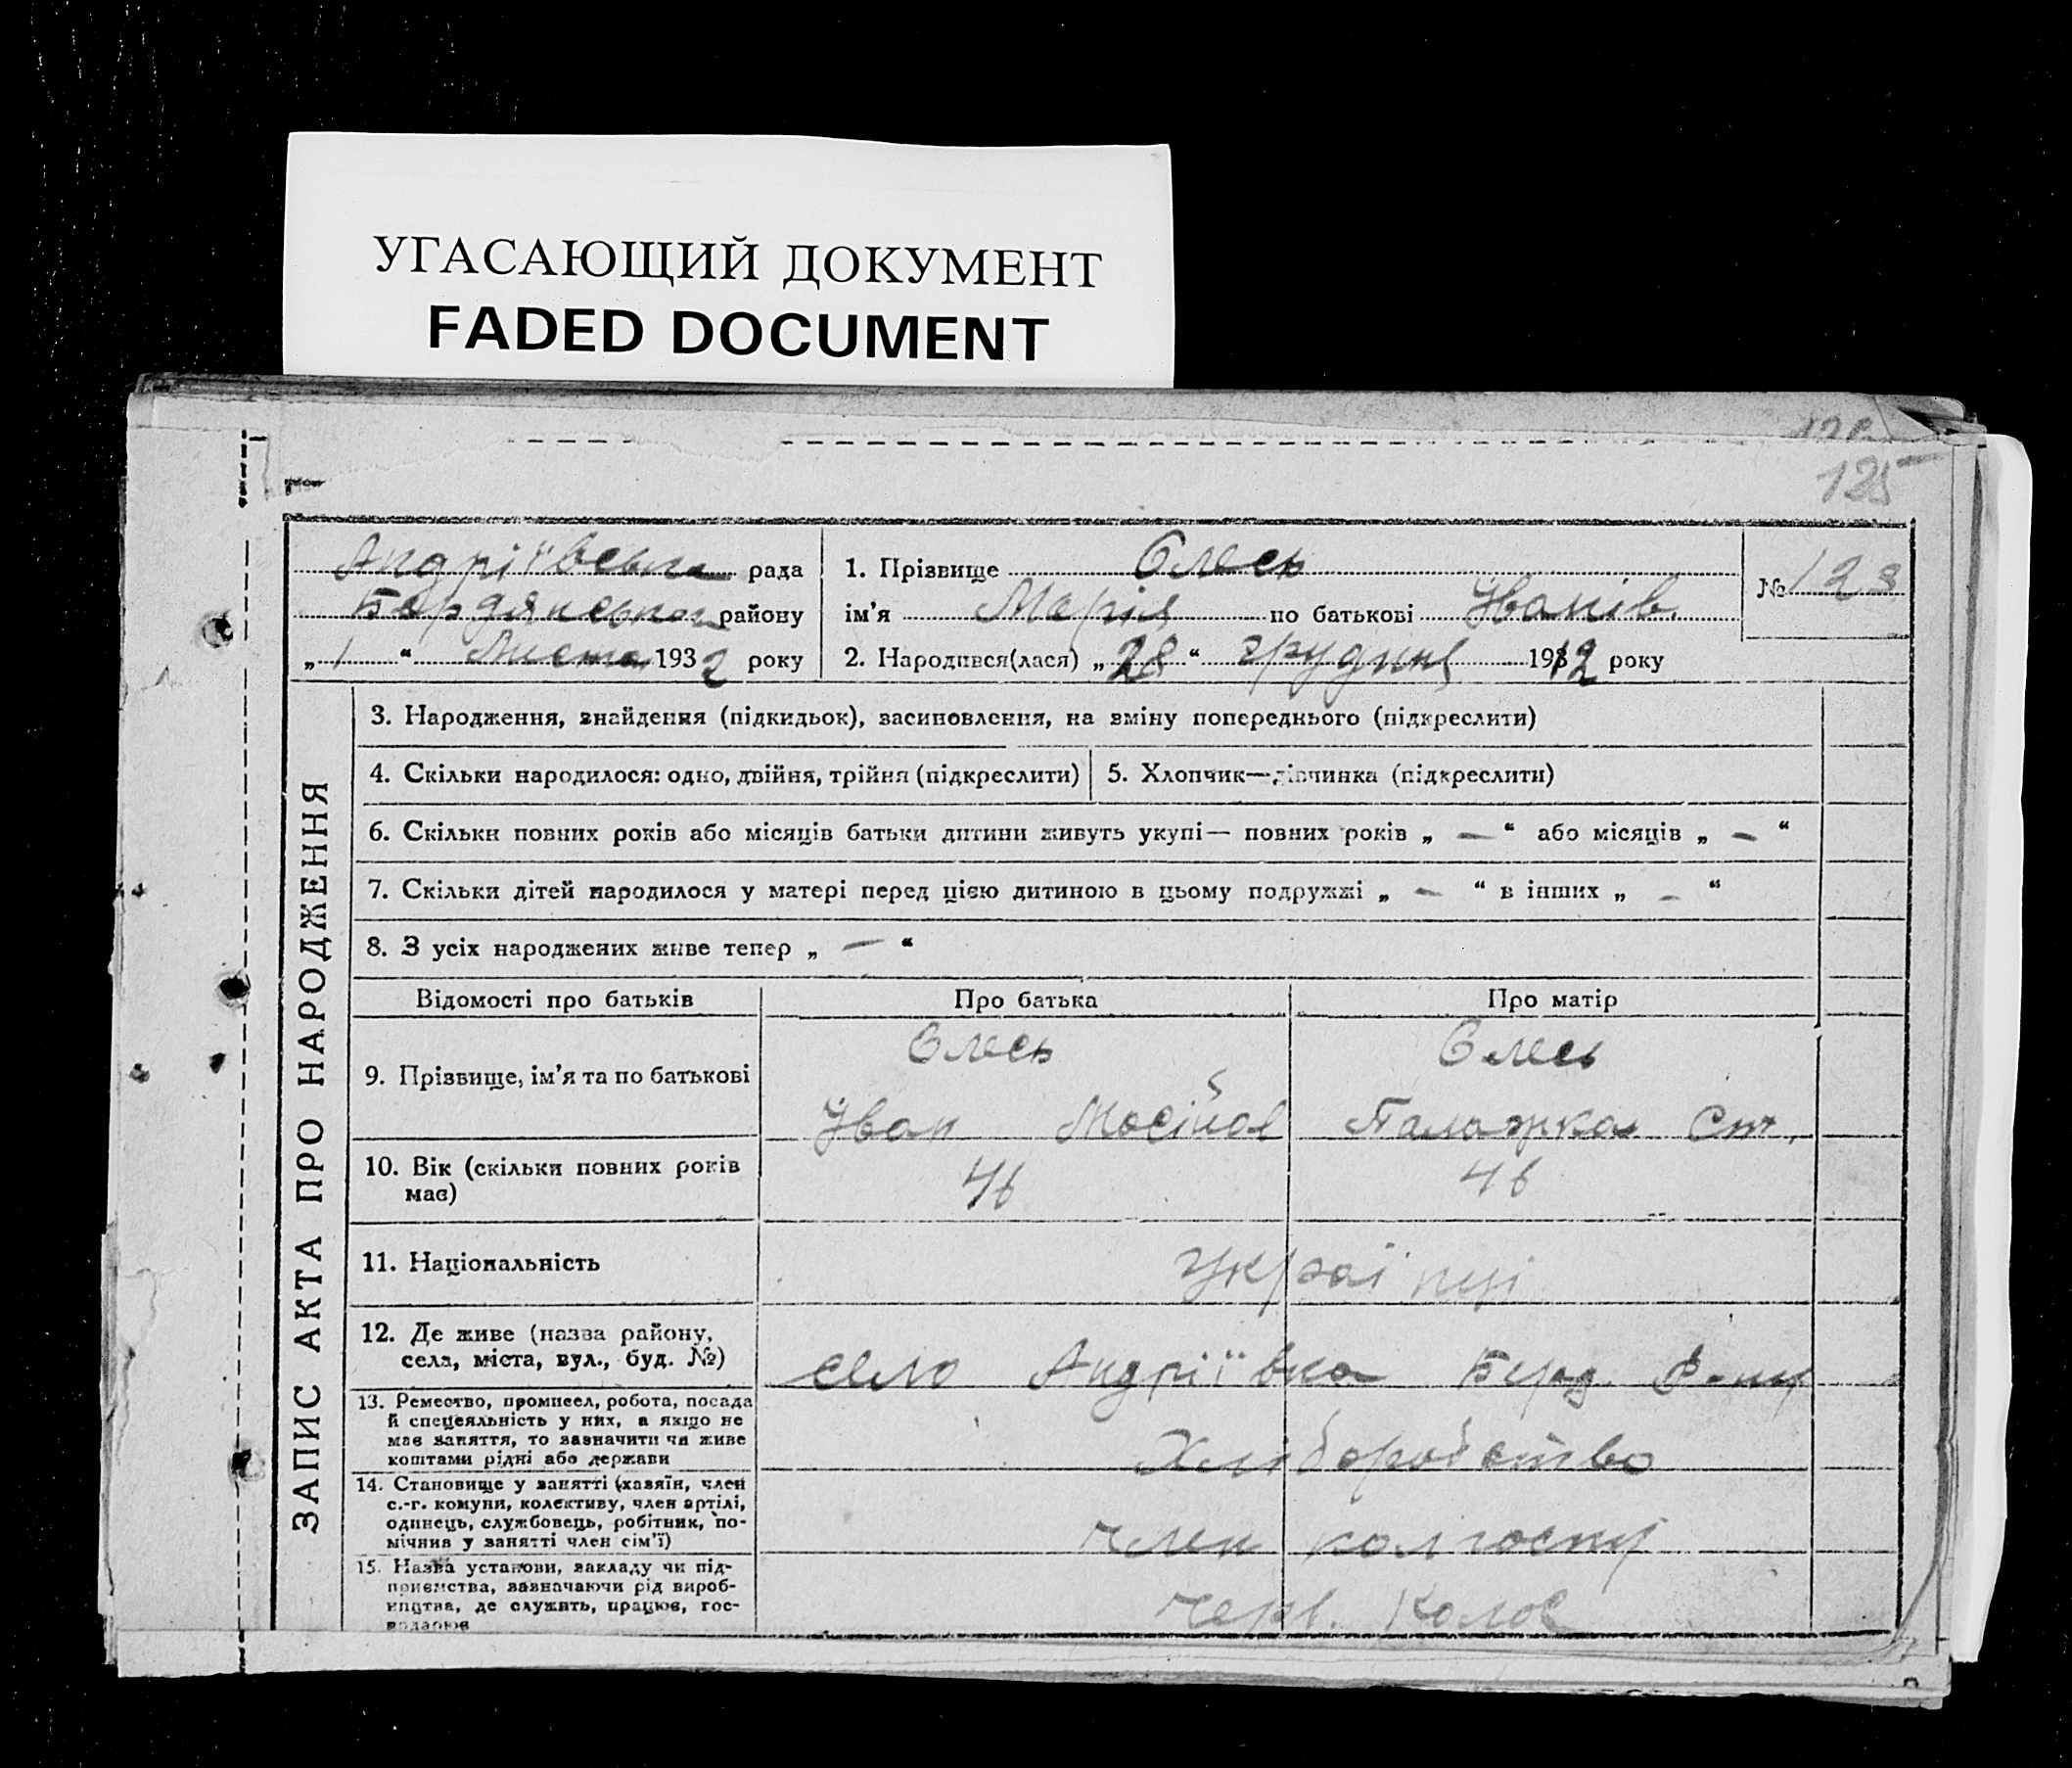 УГАСАЮЩИЙ ДОКУМЕНТ
FADED DOCUMENT
125
Андріївська рада
Бердянського району
„ 1 “ Листоп 1932 року
1. Прізвище Олесь
ім’я Марія по батькові Іванів.
2. Народився(лася) „ 28 “ грудня 1912 року
№ 128
ЗАПИС АКТА ПРО НАРОДЖЕННЯ
3. Народження, знайдення (підкидьок), засиновлення, на зміну попереднього (підкреслити)
4. Скільки народилося: одно, двійня, трійня (підкреслити)
5. Хлопчик—дівчинка (підкреслити)
6. Скільки повних років або місяців батьки дитини живуть укупі— повних років „ — “ або місяців „ — “
7. Скільки дітей народилося у матері перед цією дитиною в цьому подружжі „ — “ в інших „ — “
8. З усіх народжених живе тепер „ — “
Відомості про батьків
Про батька
Про матір
9. Прізвище, ім’я та по батькові
Олесь
Іван Мосійов
Олесь
Палажка Ст.
10. Вік (скільки повних років
має)
46
46
11. Національність
Українці
12. Де живе (назва району,
села, міста, вул., буд. №)
село Андріївка Берд. Р-ну
13. Ремество, промисел, робота, посада
й спецеяльність у них, а якщо не
має заняття, то зазначити чи живе
коштами рідні або держави
Хліборобство
14. Становище у занятті (хазяїн, член
с.-г. комуни, колективу, член артілі,
одинець, службовець, робітник, по-
мічник у занятті член сім’ї)
член колгоспу
15. Назва установи, закладу чи під-
приємства, зазначаючи рід вироб-
ництва, де служить, працює, гос-
подарює
Черв. Колос